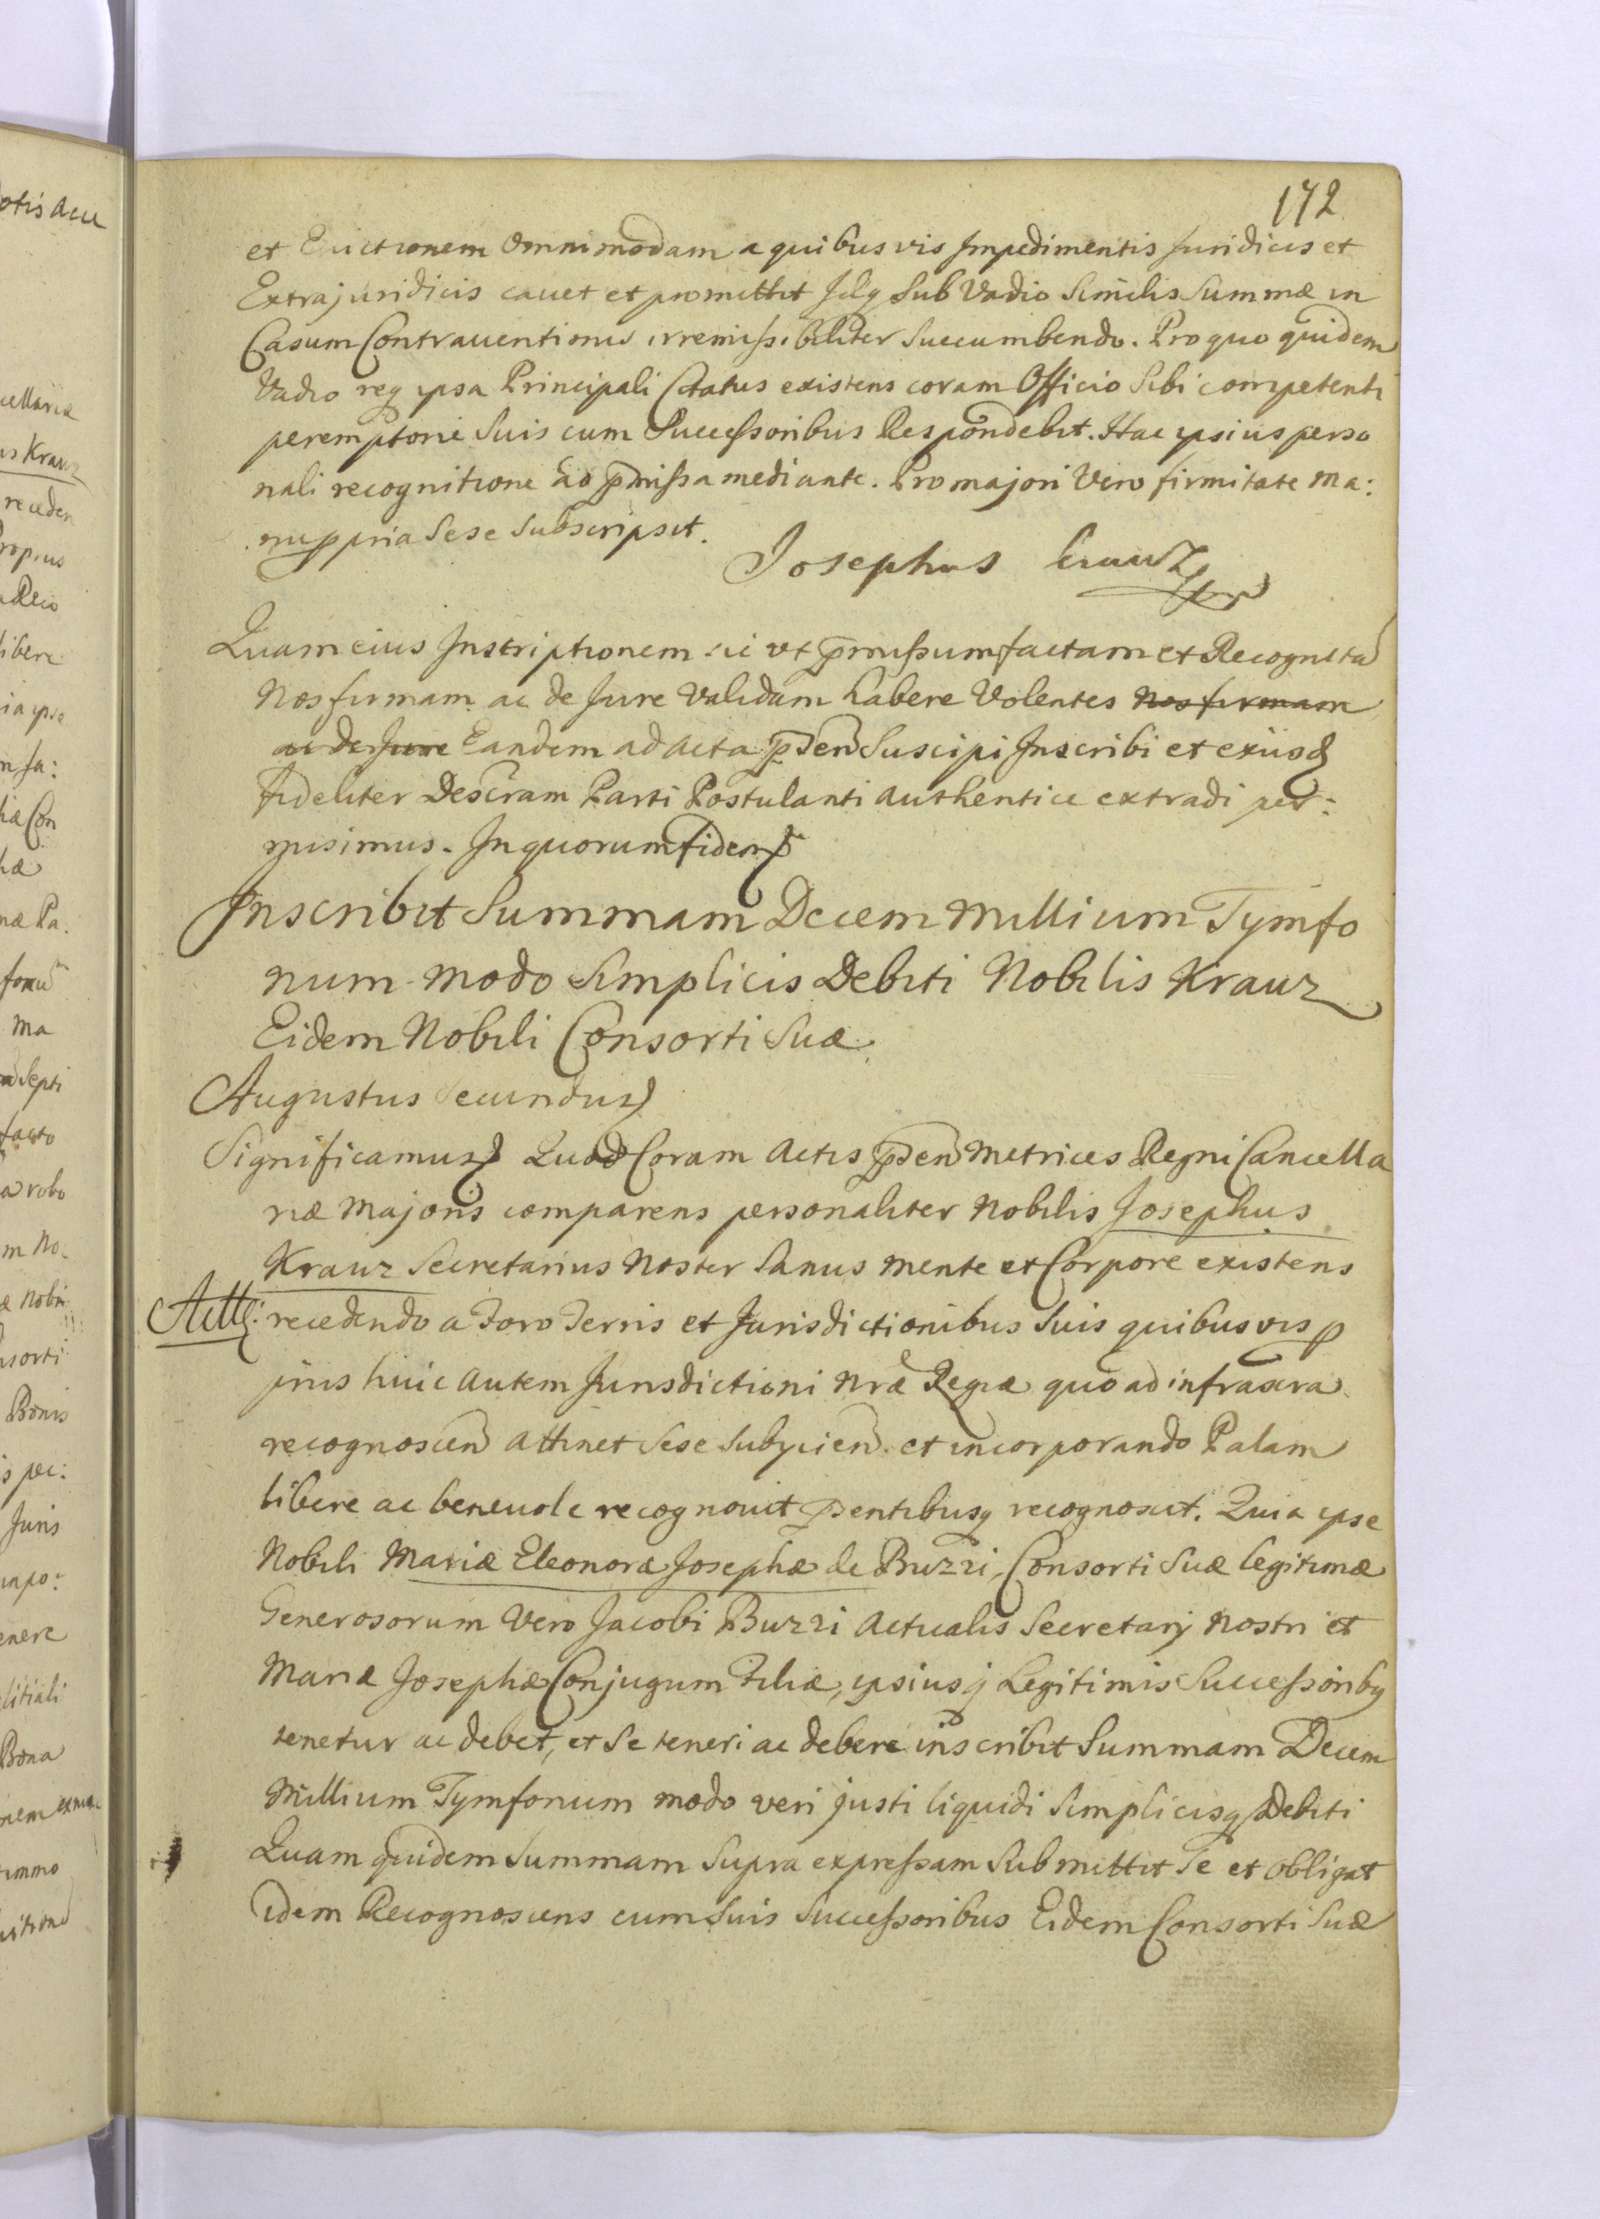 172
et Evictionem Omnimodam a quibusvis Impedimentis Juridicis et
Extrajuridicis cavet et promittit Idq sub Vadio Similis Summæ in
Casum Contraventionis irremissibiliter Succumbendo. Pro quo quidem
Vadio req ipsa Principali Citatus existens coram Officio Sibi competenti
peremptorie Suis cum Successoribus Respondebit. Hac ipsius perso
nali recognitione ad p̄missa mediante. Pro majori Vero firmitate Ma:
nuppria Sese Subscripsit.
Josephus Krauz mpr
Quam eius Inscriptionem sic ut p̄missum factam et Recognitā
Nos firmam ac de Jure Validam habere Volentes Nos firmam
ac de Jure Eandem ad Acta p̄den Suscipi Inscribi et exinsq
fideliter Descram Parti Postulanti Authentice extradi per:
misimus. In quorum fidem
Inscribit Summam Decem Millium Tymfo
num modo Simplicis Debiti Nobilis Krauz
Eidem Nobili Consorti Suæ
Augustus Secundus
Significamus Quod Coram Actis p̄den Metrices Regni Cancella
riæ Majoris comparens personaliter Nobilis Josephus
Krauz Secretarius Noster Sanus mente et Corpore existens
recedendo a Foro Terris et Jurisdictionibus Suis quibusvis p
priis huic autem Jurisdictioni Nræ Regiæ quo ad infrascra
recognoscen attinet Sese Subijcien et incorporando Palam
libere ac benevole recognovit p̄sentibusq recognoscit. Quia ipse
Nobili Mariæ Eleonoræ Josephæ de Buzzi, Consorti Suæ legitimæ
Generosorum Vero Jacobi Buzzi Actualis Secretarij Nostri et
Mariæ Josephæ Conjugum Filiæ, ipsiusq Legitimis Successoribq
tenetur ac debet, et Se teneri ac debere inscribit Summam Decem
Millium Tymfonum modo veri justi liquidi Simplicisq Debiti
Quam quidem Summam Supra expressam Submittit Se et obligat
idem Recognoscens cum Suis Successoribus Eidem Consorti Suæ